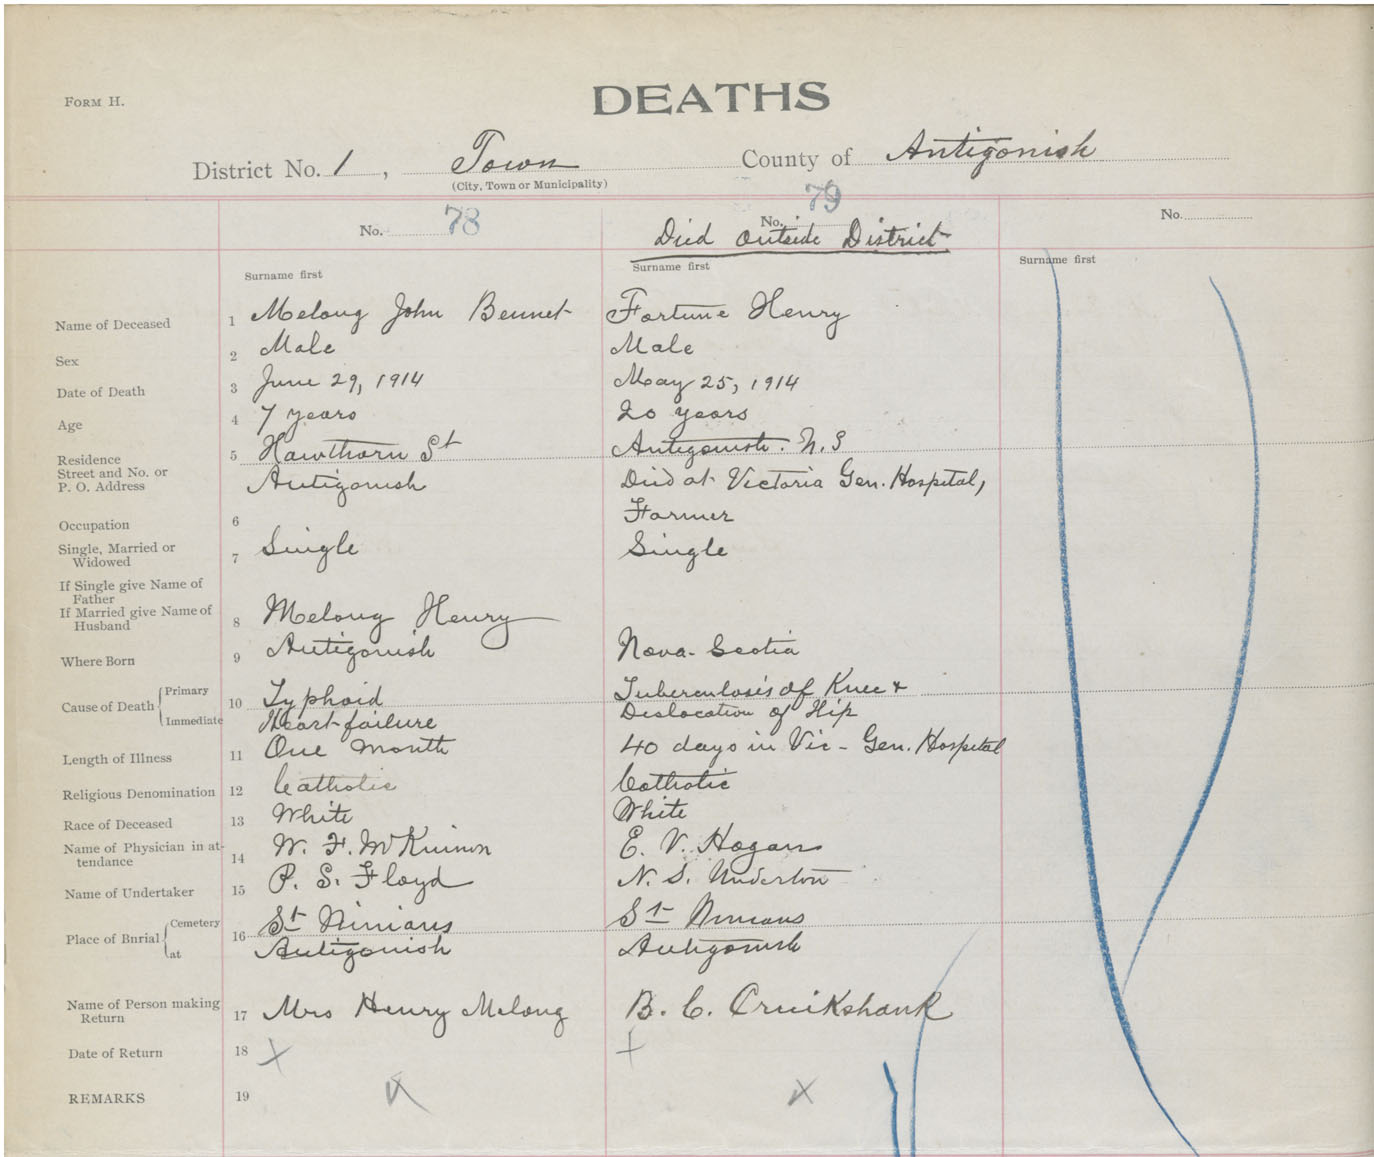 FORM H.
DEATHS
District No. 1, Town County of Antigonish
(City, Town or Municipality)
No. 78
No. 79
No.
Died outside District
Surname first
Surname first
Surname first
Name of Deceased 1 Melong John Bennet Fortune Henry
Sex 2 Male Male
Date of Death 3 June 29, 1914 May 25, 1914
Age 4 7 years 20 years
Residence 5 Hawthorn St Antigonish. N.S
Street and No. or
P. O. Address Antigonish Died at Victoria Gen. Hospital,
Occupation 6 Farmer
Single, Married or
Widowed 7 Single Single
If Single give Name of
Father
If Married give Name of
Husband 8 Melong Henry
Where Born 9 Antigonish Nova-Scotia
Cause of Death Primary 10 Typhoid Tuberculosis of Knee +
Immediate Heart failure Dislocation of Hip
Length of Illness 11 One month 40 days in Vic- Gen. Hospital
Religious Denomination 12 Catholic Catholic
Race of Deceased 13 White White
Name of Physician in at-
tendance 14 W. F. McKinnon E. V. Hogan
Name of Undertaker 15 P. S. Floyd N. S.
Place of Burial Cemetery 16 St Ninians St Ninians
at Antigonish Antigonish
Name of Person making
Return 17 Mrs Henry Melong B. C. Cruikshank
Date of Return 18 x +
REMARKS 19 x x